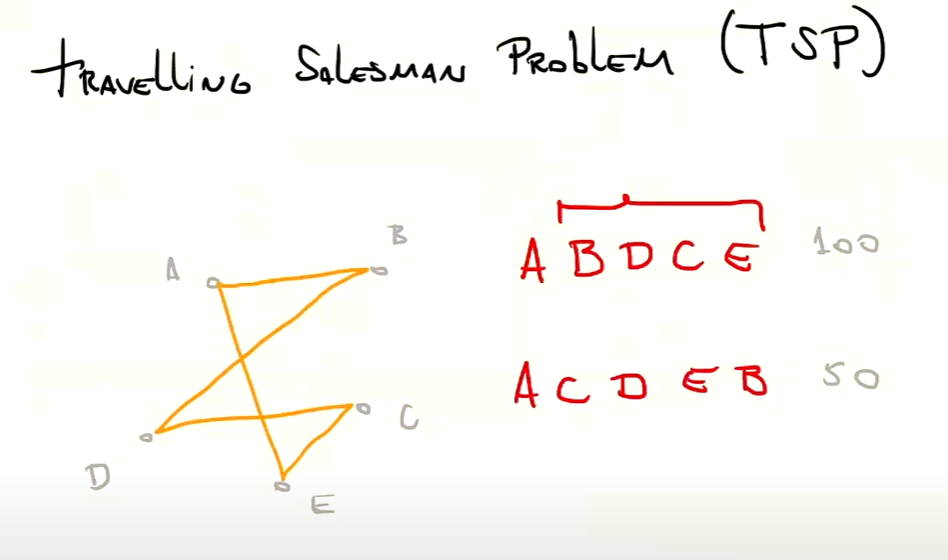 Travelling Salesman Problem (TSP)
A B
D C
E
A B D C E 100
A C D E B 50